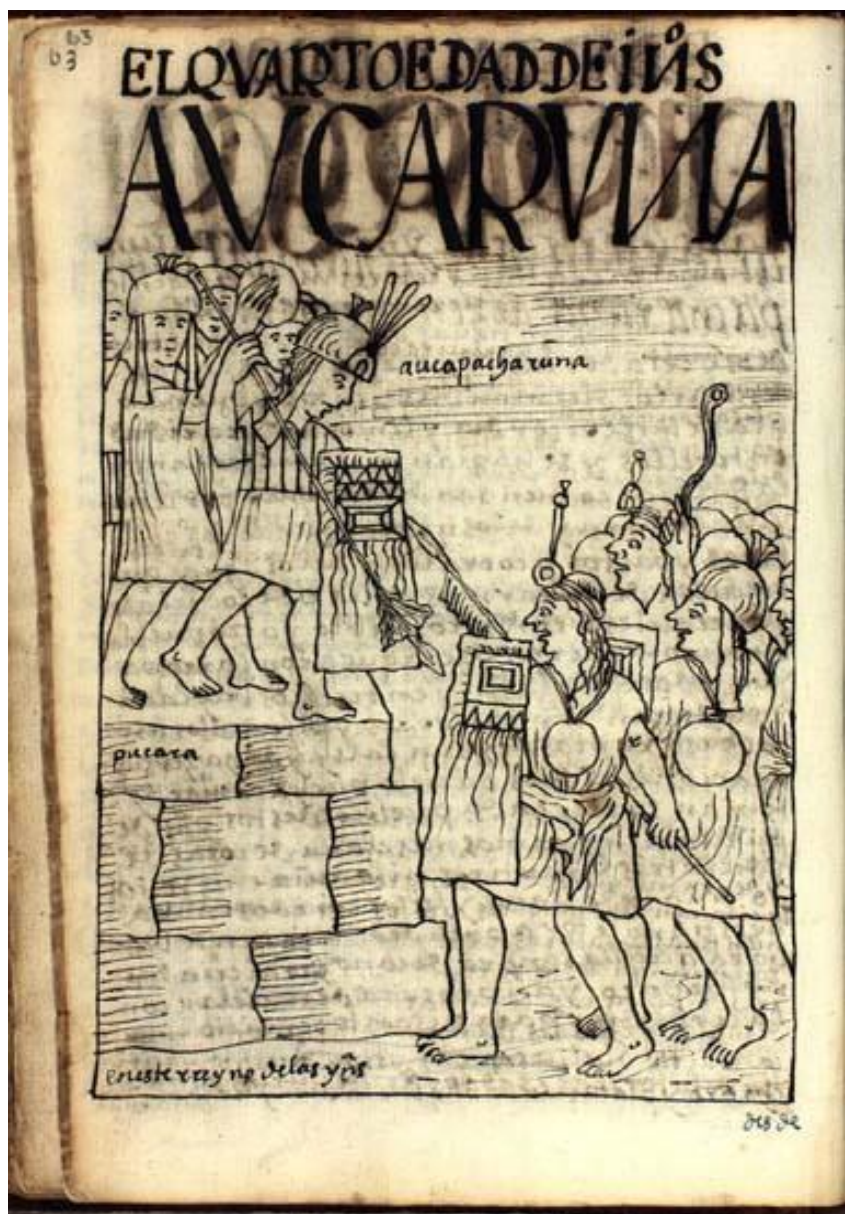 63
63
EL QVARTO EDAD DE IN̊S
AVCARVNA
aucapacharuna
pucara
en este rreyno de las yn̊s
desde